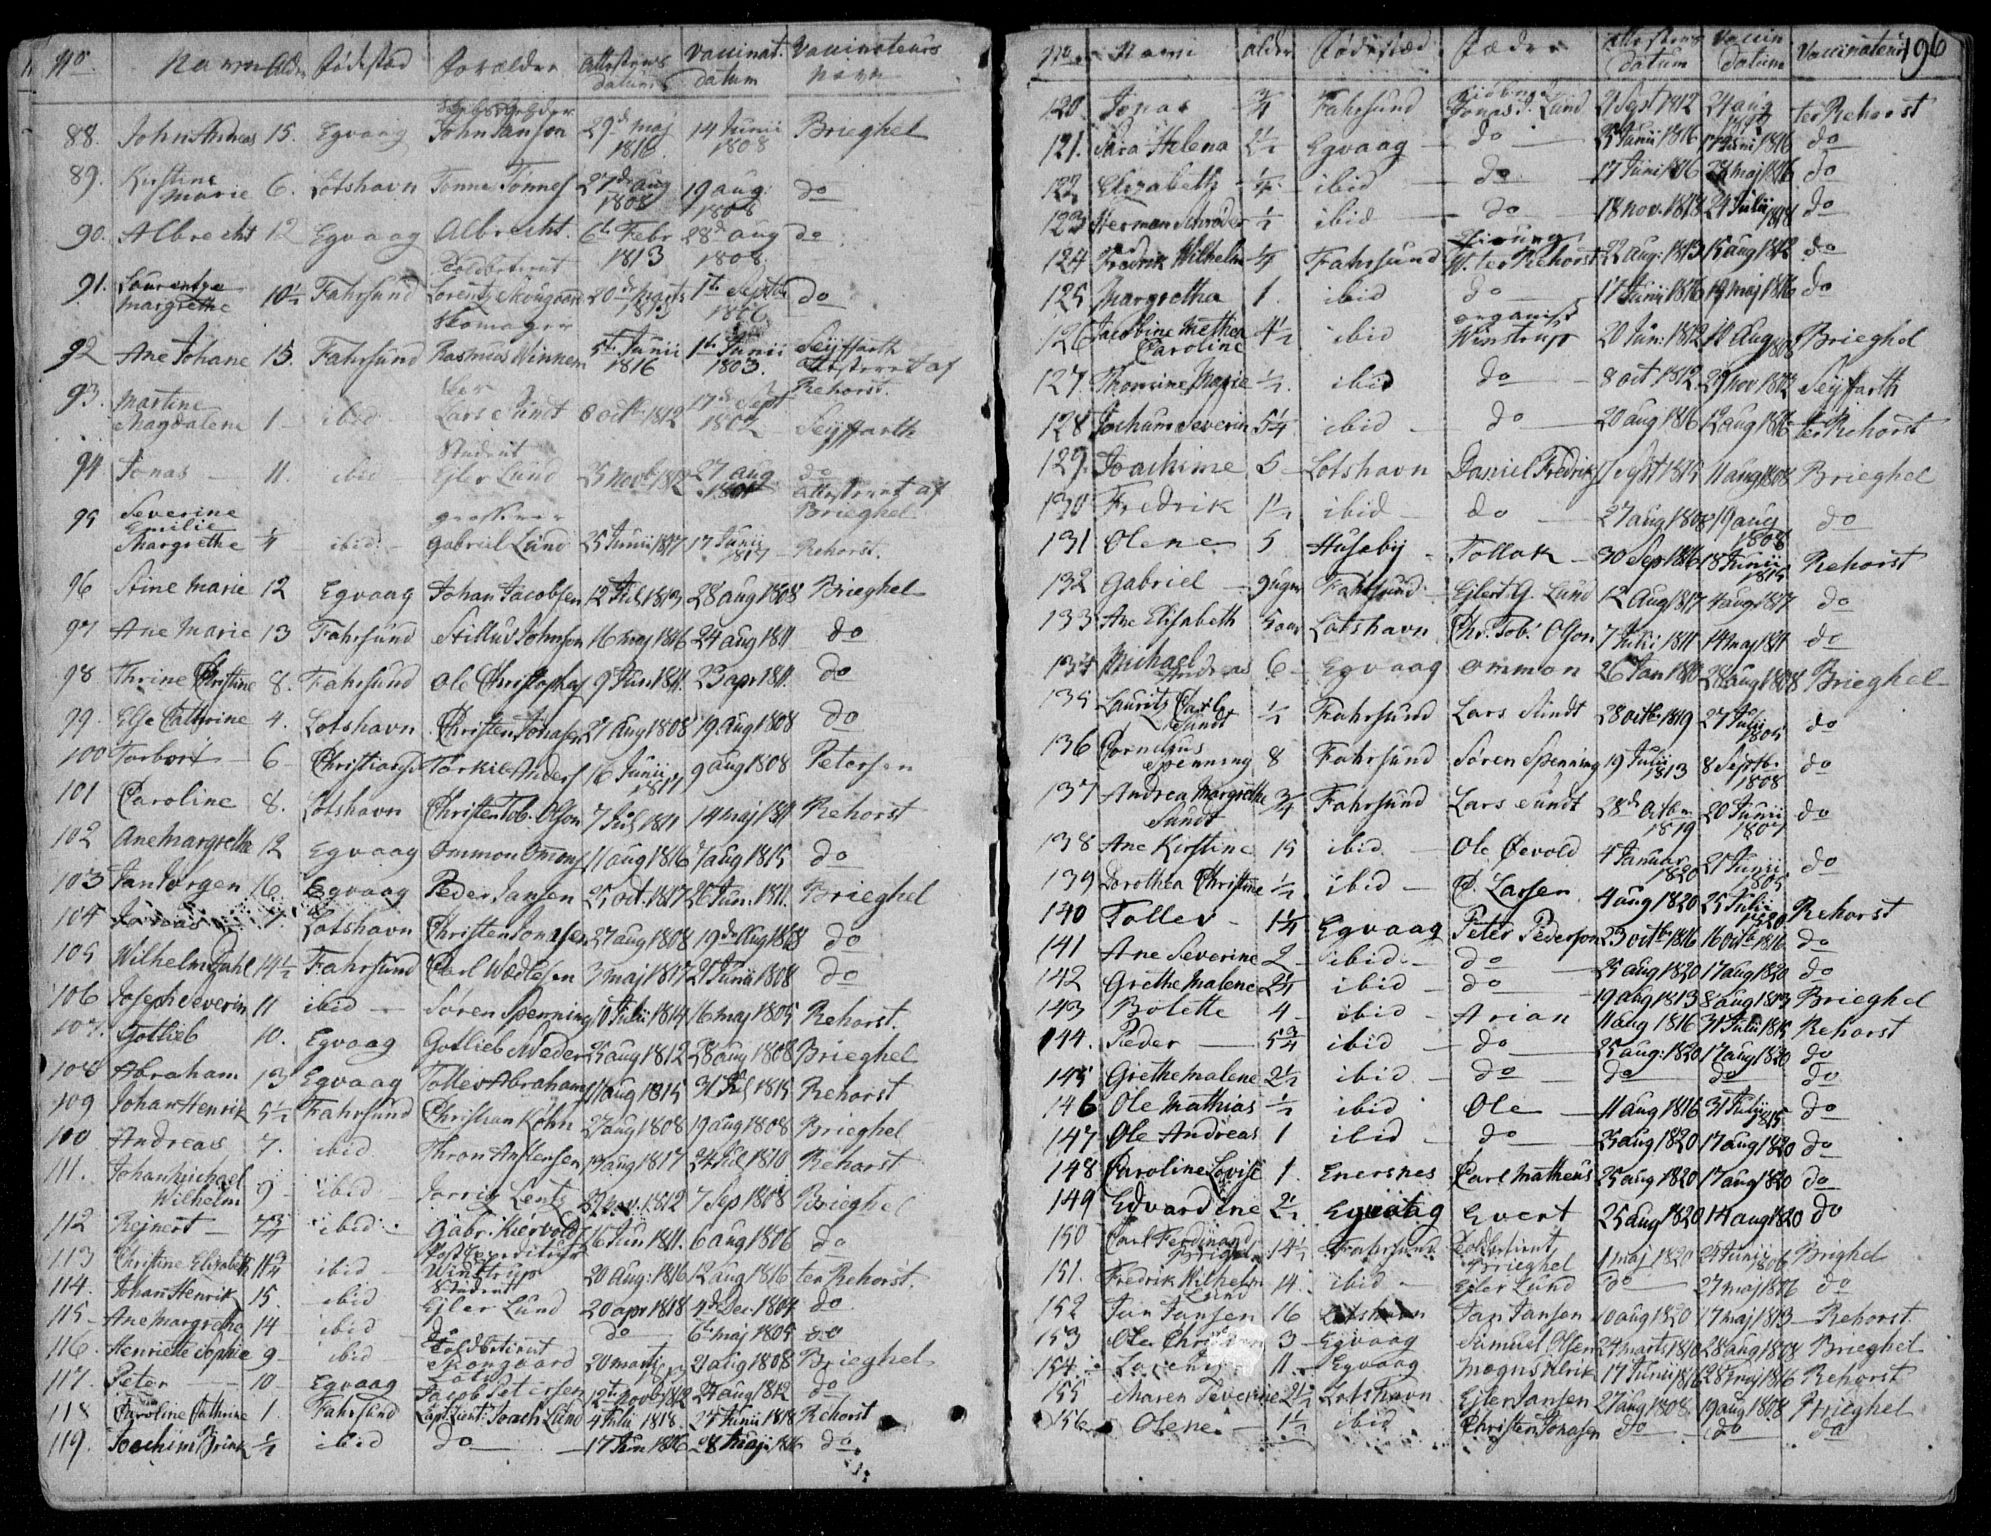 No. Navn Alder Fødestæd Forældre Attestens datum Vaccinat. datum Vaccinateurs Navn
88. John Andreas 15. Egvaag John Janson 29d maj 1816 14 Junii 1808 Brieghel
89. Kirstine Marie 6. Lotshavn Tønne Tønnes 27de aug 1808 19 aug. 1808 do
90. Albrecht 12 Egvaag Albrecht. 6te Febr 1813 28d aug 1808 do
91. Laurentze Margrethe 10½ Fahrsund Toldbetient Lorentz Skougaard 20d Septb 1t Septbr do
92 Ane Johane 13. Fahrsund Skomager Rasmus Winnem 5te Junii 1816 1te Junii 1803. Seyffarth attesteret af Rehorst.
93. Martine Magdalene 1 ibid Lars Sundt 8 octb 1812 17de Sept 1802 Seyffarth
94 Jonas 11. ibid Student Ejler Lund 25 Novb 1812 27 aug 1801 do attesteret af Brieghel
95 Severine Emilie Margrethe ¼ ibid. Grosserer Gabriel Lund 25 Junii 1817 17 Junii 1817 Rehorst.
96 Stine Marie 12 Egvaag Johan Jacobsen 12 Jul 1813 28 aug 1808 Brieghel
97 Ane Marie 13 Fahrsund Stillus Johnsen 16 maj 1816 24 aug 1811 do
98 Thrine Christine 8. Fahrsund Ole Christophs 9 Jun 1811. 23 apr 1811. do
99. Else Cathrine 4. Lotshavn Christen Jonasen 27 Aug 1808 19 Aug 1808 do
100 Torbort 6 Torkil Anders 16 Junii 1811 9 aug 1808 Petersen
101 Caroline 8. Lotshavn Christen Tob. Olson 7 Juli 1811 14 maj 1811 Rehorst
102 Ane Margrethe 12 Egvaag Ommon Omons 11 aug 1816 7 aug 1815 do
103 Jan Jørgen 16 Egvaag Peder Jansen 25 oct. 1817 26 Jun. 1811. Brieghel
104 Lotshavn Christen Jonasen 27 aug 1808 19 d Aug 1808 do
105 Wilhelm Dahl 14½ Fahrsund Carl Wedlesen 3 maj 1817 21 Junii 1808 do
106 Joseph Severin 11 ibid Søren Spenning 6 Julii 1814 16 maj 1805 Rehorst.
107. Gotlieb 10. Egvaag Gotlieb Aveder 25 aug 1812 28 aug 1808 Brieghel
108 Abraham 13 Egvaag Tollev Abrahams 11 aug 1815 31 Jul 1815 Rehorst
109 Johan Henrik 5½ Fahrsund Christian Køhn 27 aug 1808 19 aug 1808 Brieghel
100 Andreas 7. ibid Thron Anstensen 13 aug 1817 24 Jul 1810 Rehorst
111. Johan Michael Wilhelm 9 ibid Jørrig Lentz 27 nov. 1812 7 Sep 1808 Brieghel
112 Rejnert 7¾ ibid. Gabr. Kierwold 16 Jun 1811. 6 aug 1806 do
113 Christine Elisabeth 11¾ ibid Post Expediteur Windstrup 20 Aug: 1816 12 aug 1816 ter Rehorst.
114. Johan Henrik 15. ibid Student Ejler Lund 20 apr 1818 4de Dec. 1804 do.
115 Ane Margrethe 14 ibid do do 6te maj 1805 do
116. Henriette Sophie 9 ibid Toldbetient Skougaard 20 marts 21 aug 1808 Brieghel
117. Peter 10 Egvaag Jacob Petersen 12te Novb 1812 24 aug 1812 do
118 Caroline Cathrine 1. Fahrsund Capt. Lieut: Joach Lund 4 Julii 1818. 25 Junii 1818 Rehorst
119. Joachim Brink ½ ibid do 17 Jun 1816 28 Maji 1816 do
No. Navn Alder Fødestæd Fædre Attestens datum Vaccin datum Vaccinateur 196
120 Jonas ¾ Fahrsund Jonas J. Lund 2 Sept 1812 24 aug ter Rehorst
121. Sara Helena 2½ Egvaag do 25 Junii 1816 17 Juni 1816 do
122 Elezabeth ¼ ibid do 17 Juni 1816 28 maj 1816 do
123 Herman Schrøder ½ ibid do 18 nov. 1818 24 Julii 1818 do
124 Fredrik Wilhelm ¼ Fahrsund W. ter Rehorst 22 aug: 1813 15 aug 1812 do
125 Margrethe 1. ibid do 17 Junii 1816 19 maj 1816 do
126 Jacobine Methea Caroline 4½ ibid organist Winstrup 20 Jun: 1812 10 Aug 1808 Brieghel
127. Thomine Marie ½. ibid do 8 oct 1812 29 nov 1802 Seyffarth
128 Jochum Severin 5¼ ibid do 20 aug 1816 12 aug 1816 ter Rehorst
129. Joachime 5 Lotshavn Daniel Fredriks 1 Sept 1815 11 aug 1808 Brieghel
130 Fredrik 1½ ibid do 27 aug 1808 19 aug 1808 do
131 Olene 5 Huseby Tollak 30 Sep 1816 18 Junii 1815 Rehorst
132 Gabriel 9 uger Fahrsund Ejlert G. Lund 12 Aug 1817 4 aug 1817 do
133 Ane Elisabeth 5 aar Lotshavn Chr. Tob. Olson 7 Juli 1811 14 maj 1811 do
134 Michael Andreas 6 Egvaag Ommon 26 Jan 1810 28 aug 1808 Brieghel
135 Lauritz Carl Sundt ½ Fahrsund Lars Sundt 28 octb 1819 27 Julii 1805 do
136 Cornelius Spenning 8 Fahrsund Søren Spenning 19 Julii 1813 8 Septb. 1808 do
137 Andrea Margrethe Sundt ¾ Fahrsund Lars Sundt 28d octbr 1819 20 Junii 1807 do
138 Ane Kirstine 15 ibid Ole Øevold 4 Januar 1820 21 Junii 1805 do
139 Dorothea Christine ½ ibid C. Lassen 4 aug 1820 25 Julii 1820 Rehorst
140 Tollev 1¼ Egvaag Peter Pederson 23 octb 1816 16 octb 1816 do
141 Ane Severine 2 ibid do 25 aug 1820 17 aug 1820 do
142 Grethe Malene 2½ ibid do 19 aug 1813 8 aug 1813 Brieghel
143 Bolette 4 ibid Arian 11 aug 1816 31 Julii 1815 Rehorst
144. Peder 5¾ ibid do 25 aug: 1820 17 aug 1820 do
145 Grethe Malene 2½ ibid do do do do
146 Ole Mathias ½ ibid Ole 11 aug 1816 31 Julii 1815 do
147 Ole Andreas 1 ibid do 25 aug 1820 17 aug 1820 do
148 Caroline Lovise 1. Enersnes Carl Matheus 25 aug 1820 17 aug 1820 do
149 Edvardine 2½ Egvaag Evert 25 aug 1820 14 aug 1820 do
150 Carl Ferdinand Brieghel 14½ Fahrsund Toldbetient Brieghel 1 maj 1820 24 Junii 1806 Brighel
151. Fredrik Wilhelm Lund 14. ibid Ejler Lund do 27 maj 1806 do
152 Jan Jansen 16 Lotshavn Jan Janson 10 aug 1820 17 maj 1813 Rehorst.
153 Ole 3 Egvaag Samuel Olsen 24 marts 1810 28 aug 1808 Brieghel
154 11 Egvaag Mogns Ulrik 17 Junii 1816 28 maj 1816 Rehorst
155 Maren Severine 2½ Lotshavn Ejler Jansen 27 aug 1808 19 aug 1808 Brieghel
156 Olene 1½ ibid Christen Jonasen do do do